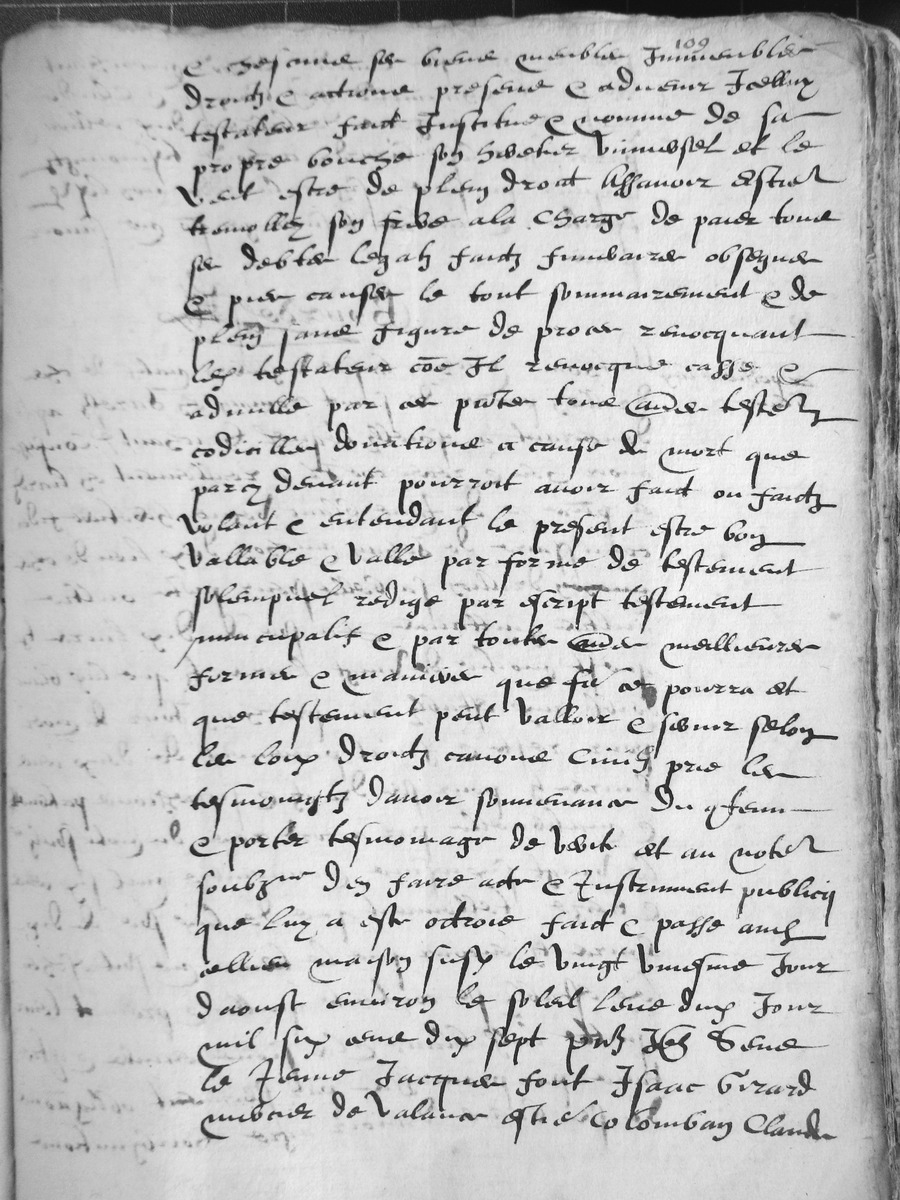 109
& chescune ses biens meubles Immeubles
droictz & actions presens & advenir Icelluy
testateur faict Institue & nomme de sa
propre bouche son heretier universel et le
veut estre de plein droict Assavoir estien
tremollez son frere a la charge de paier tous
ses debtes legatz faictz funeraires obseques
& pies causes le tout sommairement & de
plein sans figure de proces revocquant
led testateur coe Il revocque casse &
adnulle par ces pntes tous aues testem
codicilles donations a cause de mort que
par cy devant pourroit avoir faict ou faictz
volant & entendant le present estre bon
vallable & valle par forme de testement
solempnel redige par escript testement
nuncupatif & par toutes aues meilleures
formes & manieres que fe ce pourra et
que testement peut valloir & servir selon
les loix droictz canons Civilz prie les
tesmoingtz davoir souvenance du contenu
& porter tesmoinage de verite et au notere
soubzne den faire acte & Instrument publicq
que luy a este octroie faict & passe aud
cellier maison susd le vingt uniesme Jour
daoust environ le soleil leve dud Jour
mil six cens dix sept pntz Jeh Sens
le Jeune Jacques font Isaac Girard
mercier de valance estie Colomban Claude